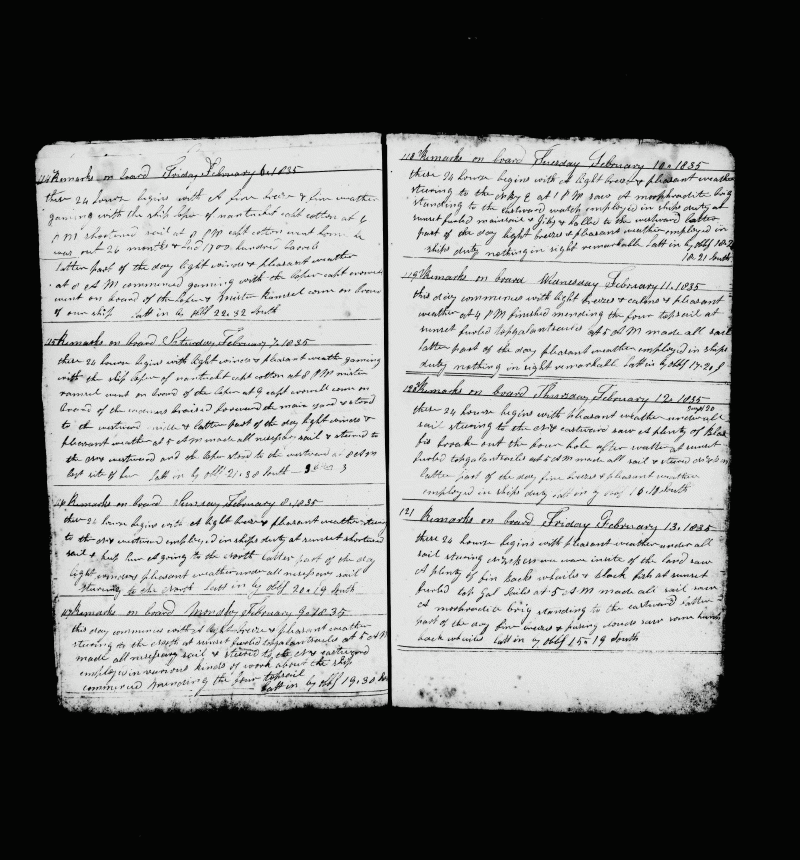 114 Remarks on board Friday February 6. 1835
these 24 hours begins with A fine breeze & fine weather
gaming with the ship loper of nantucket capt cotton at 6
P M shortened sail at 8 P M capt cotton went home he
was out 26 months & had 1700 hundred barels
latter part of the day light winds & pleasant weather
at 8 A M commenced gaming with the loper capt
went on board of the loper & mister came on board
of our ship latt in by obbs 22..32 South
115 Remarks on board Saturday February 7. 1835
these 24 hours begins with light winds & pleasant weath gaming
with the ship loper of nantucket capt cotton at 8 P M mister
went on board of the loper at 9 capt came on
board of the braced forward the main yard & stood
to the westward middle & latter part of the day light winds &
pleasant weather at 5 A M made all nessesary sail & steered to
the westward and the loper stood to the westward at 8 A M
lost site of her latt in by obbs 21..38 South
116 Remarks on board Sunday February 8. 1835
these 24 hours begins with A light breeze & pleasant weather steering
to the westward employed in ships duty at sunset shortened
sail & kept her steering to the north latter part of the day
light winds & pleasant weather under all nessesary sail
steering to the north latt in by obbs 20..19 South
117 Remarks on board Monday February 9. 1835
this day commences with A light breeze & pleasant weather
steering to the north at sunset furled topgalantsails at 5 A M
made all nessesary sail & steered to the & eastward
employed in various kinds of work about the ship
commenced mending the four topsail
latt in by obbs 19..30 South
118 Remarks on board Tuesday February 10. 1835
these 24 hours begins with A light breeze & pleasant weather
steering to the N by E at 1 P M saw A mophradite brig
standing to the eastward watch employed in ships duty at
sunset furled mainsail & jibs & halled to the westward latter
part of the day light breezes & pleasant weather employed in
ships duty nothing in sight remarkable latt in by obbs
18..21 South
119 Remarks on board Wianesday February 11. 1835
this day commences with light breezes & calms & pleasant
weather at 4 P M finished mending the four topsail at
sunset furled topgalantsails at 5 A M made all sail
latter part of the day pleasant weather employed in ships
duty nothing in sight remarkable latt in by obbs 17..20 S
120 Remarks on board Thursday February 12. 1835
these 24 hours begins with pleasant weather under all
sail steering to the & eastward saw A plenty of Black
fis break out the four hole after water at sunset
furled topgalantsails at 5 A M made all sail & steered
latter part of the day fine breezes & pleasant weather
employed in ships duty latt in by obbs South
121 Remarks on board Friday February 13. 1835
these 24 hours begins with pleasant weather under all
sail steering we were insite of the land saw
A plenty of fin backs whales & black fish at sunset
furled top Gal Sails at 5 A M made all sail saw
A mophradite brig standing to the eastward latter
part of the day fine breezes & passing clouds saw some hump
back whales latt in by obbs 15..19 South